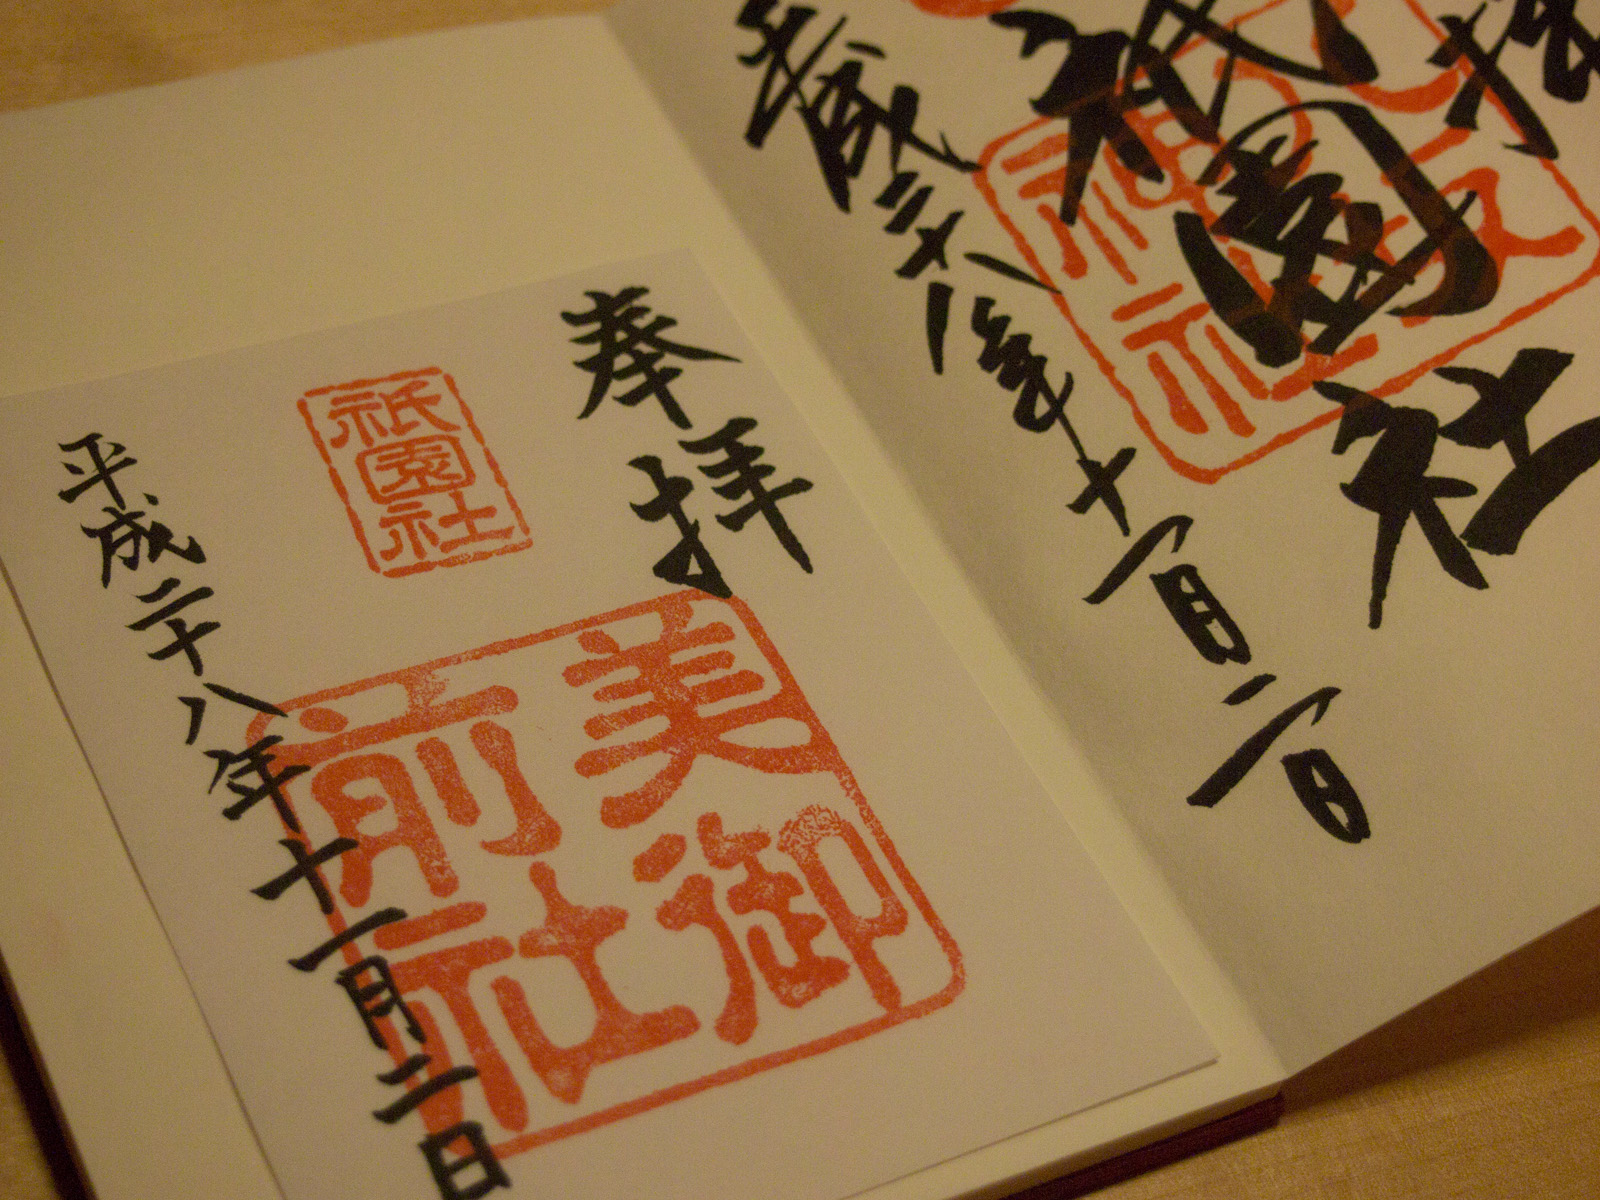 祇園社
平成二十八年十一月二日
八坂神社
奉拝
祇園社
美御前社
平成二十八年十一月二日